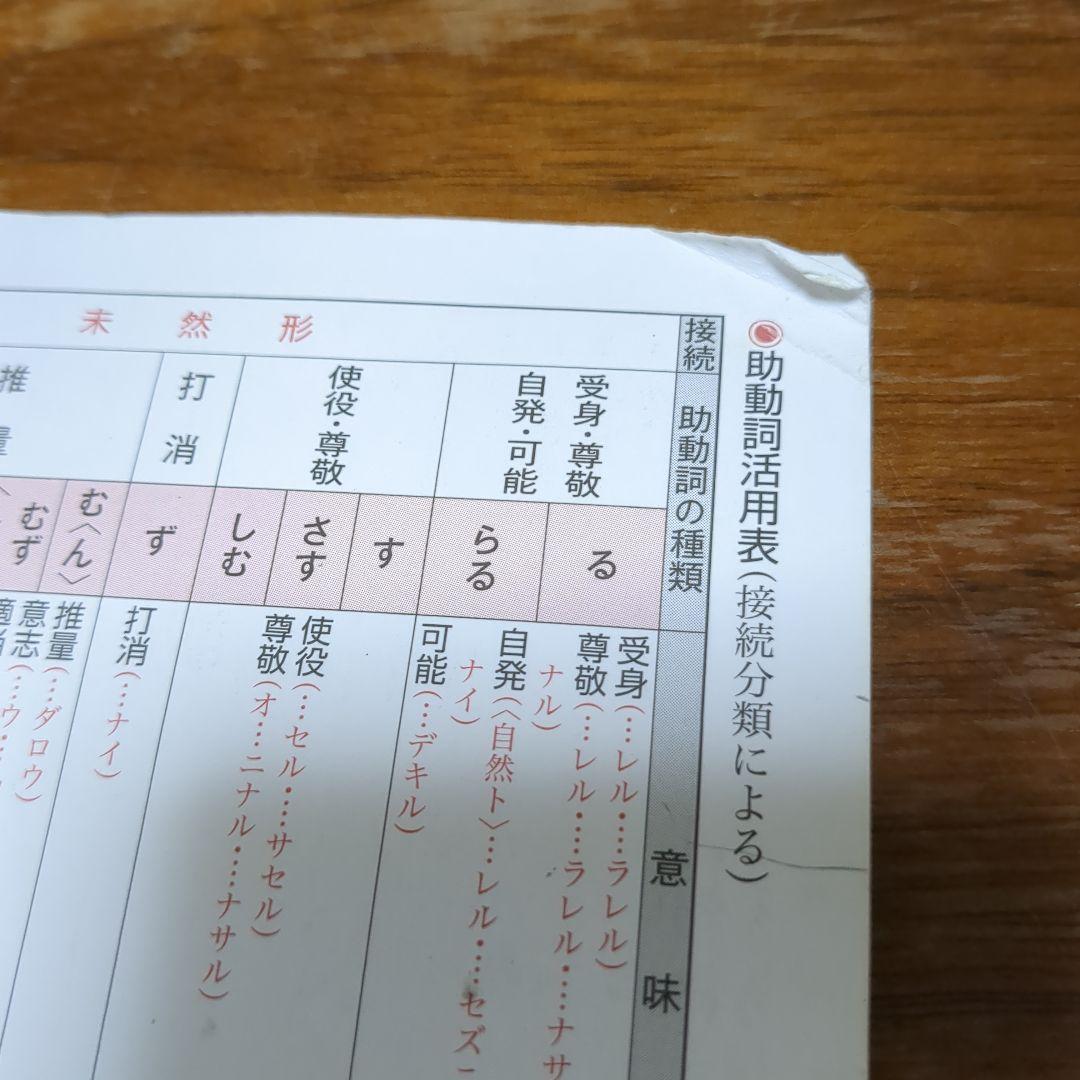 助動詞活用表(接続分類による)
接続
助動詞の種類
意味
未然形
受身・尊敬
自発・可能
る
らる
受身(…レル・…ラレル)
尊敬(…レル・…ラレル・…ナサ
ナル)
自発(〈自然ト〉…レル・…セズニ
ナイ)
可能(…デキル)
使役・尊敬
す
さす
しむ
使役(…セル・…サセル)
尊敬(オ…ニナル・…ナサル)
打消
ず
打消(…ナイ)
推量
む〈ん〉
むず
推量(…ダロウ)
意志(…ウ